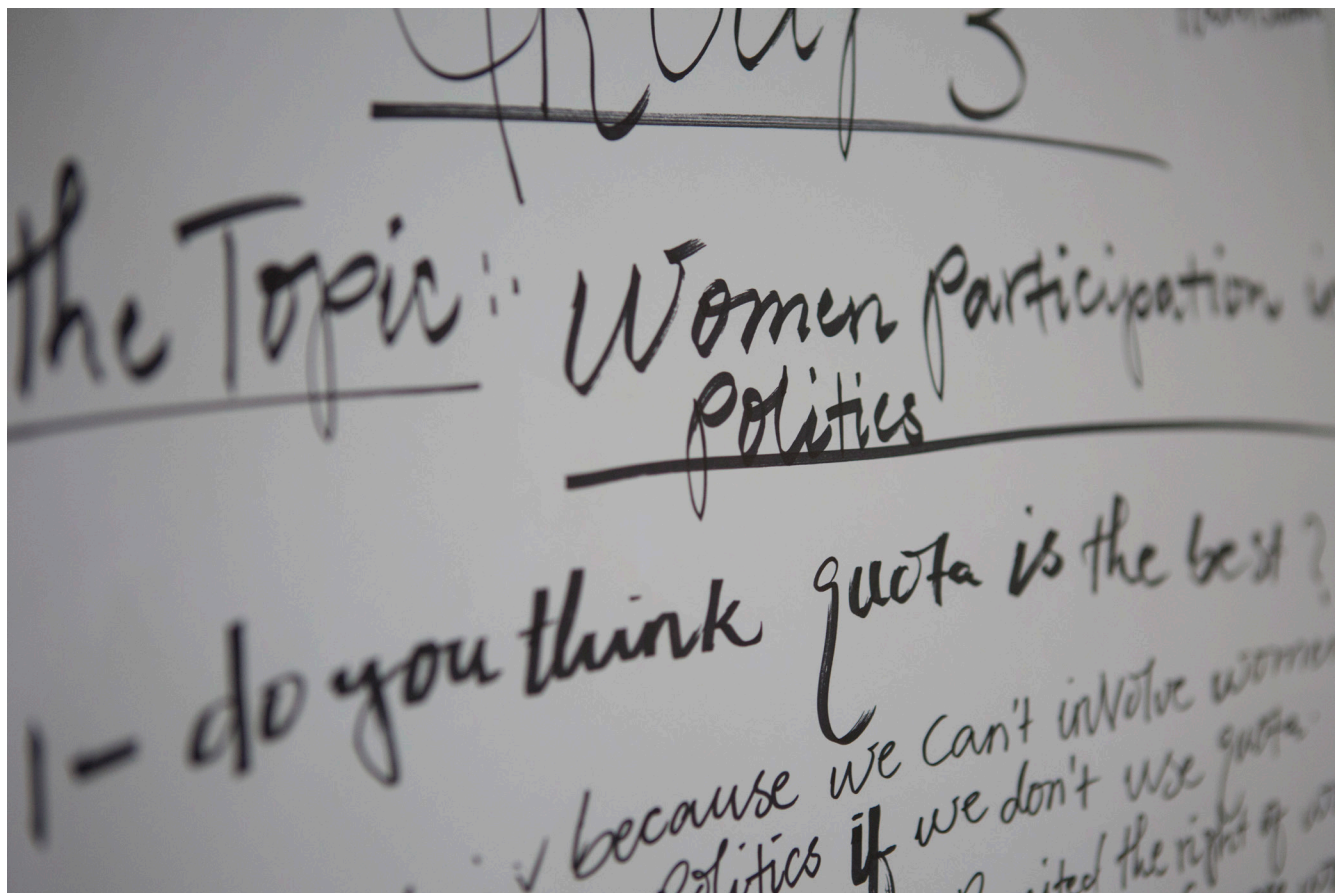 Group 3
the Topic: Women participation in
politics
1- do you think quota is the best?
because we can't involve women
politics if we don't use quota
the right of